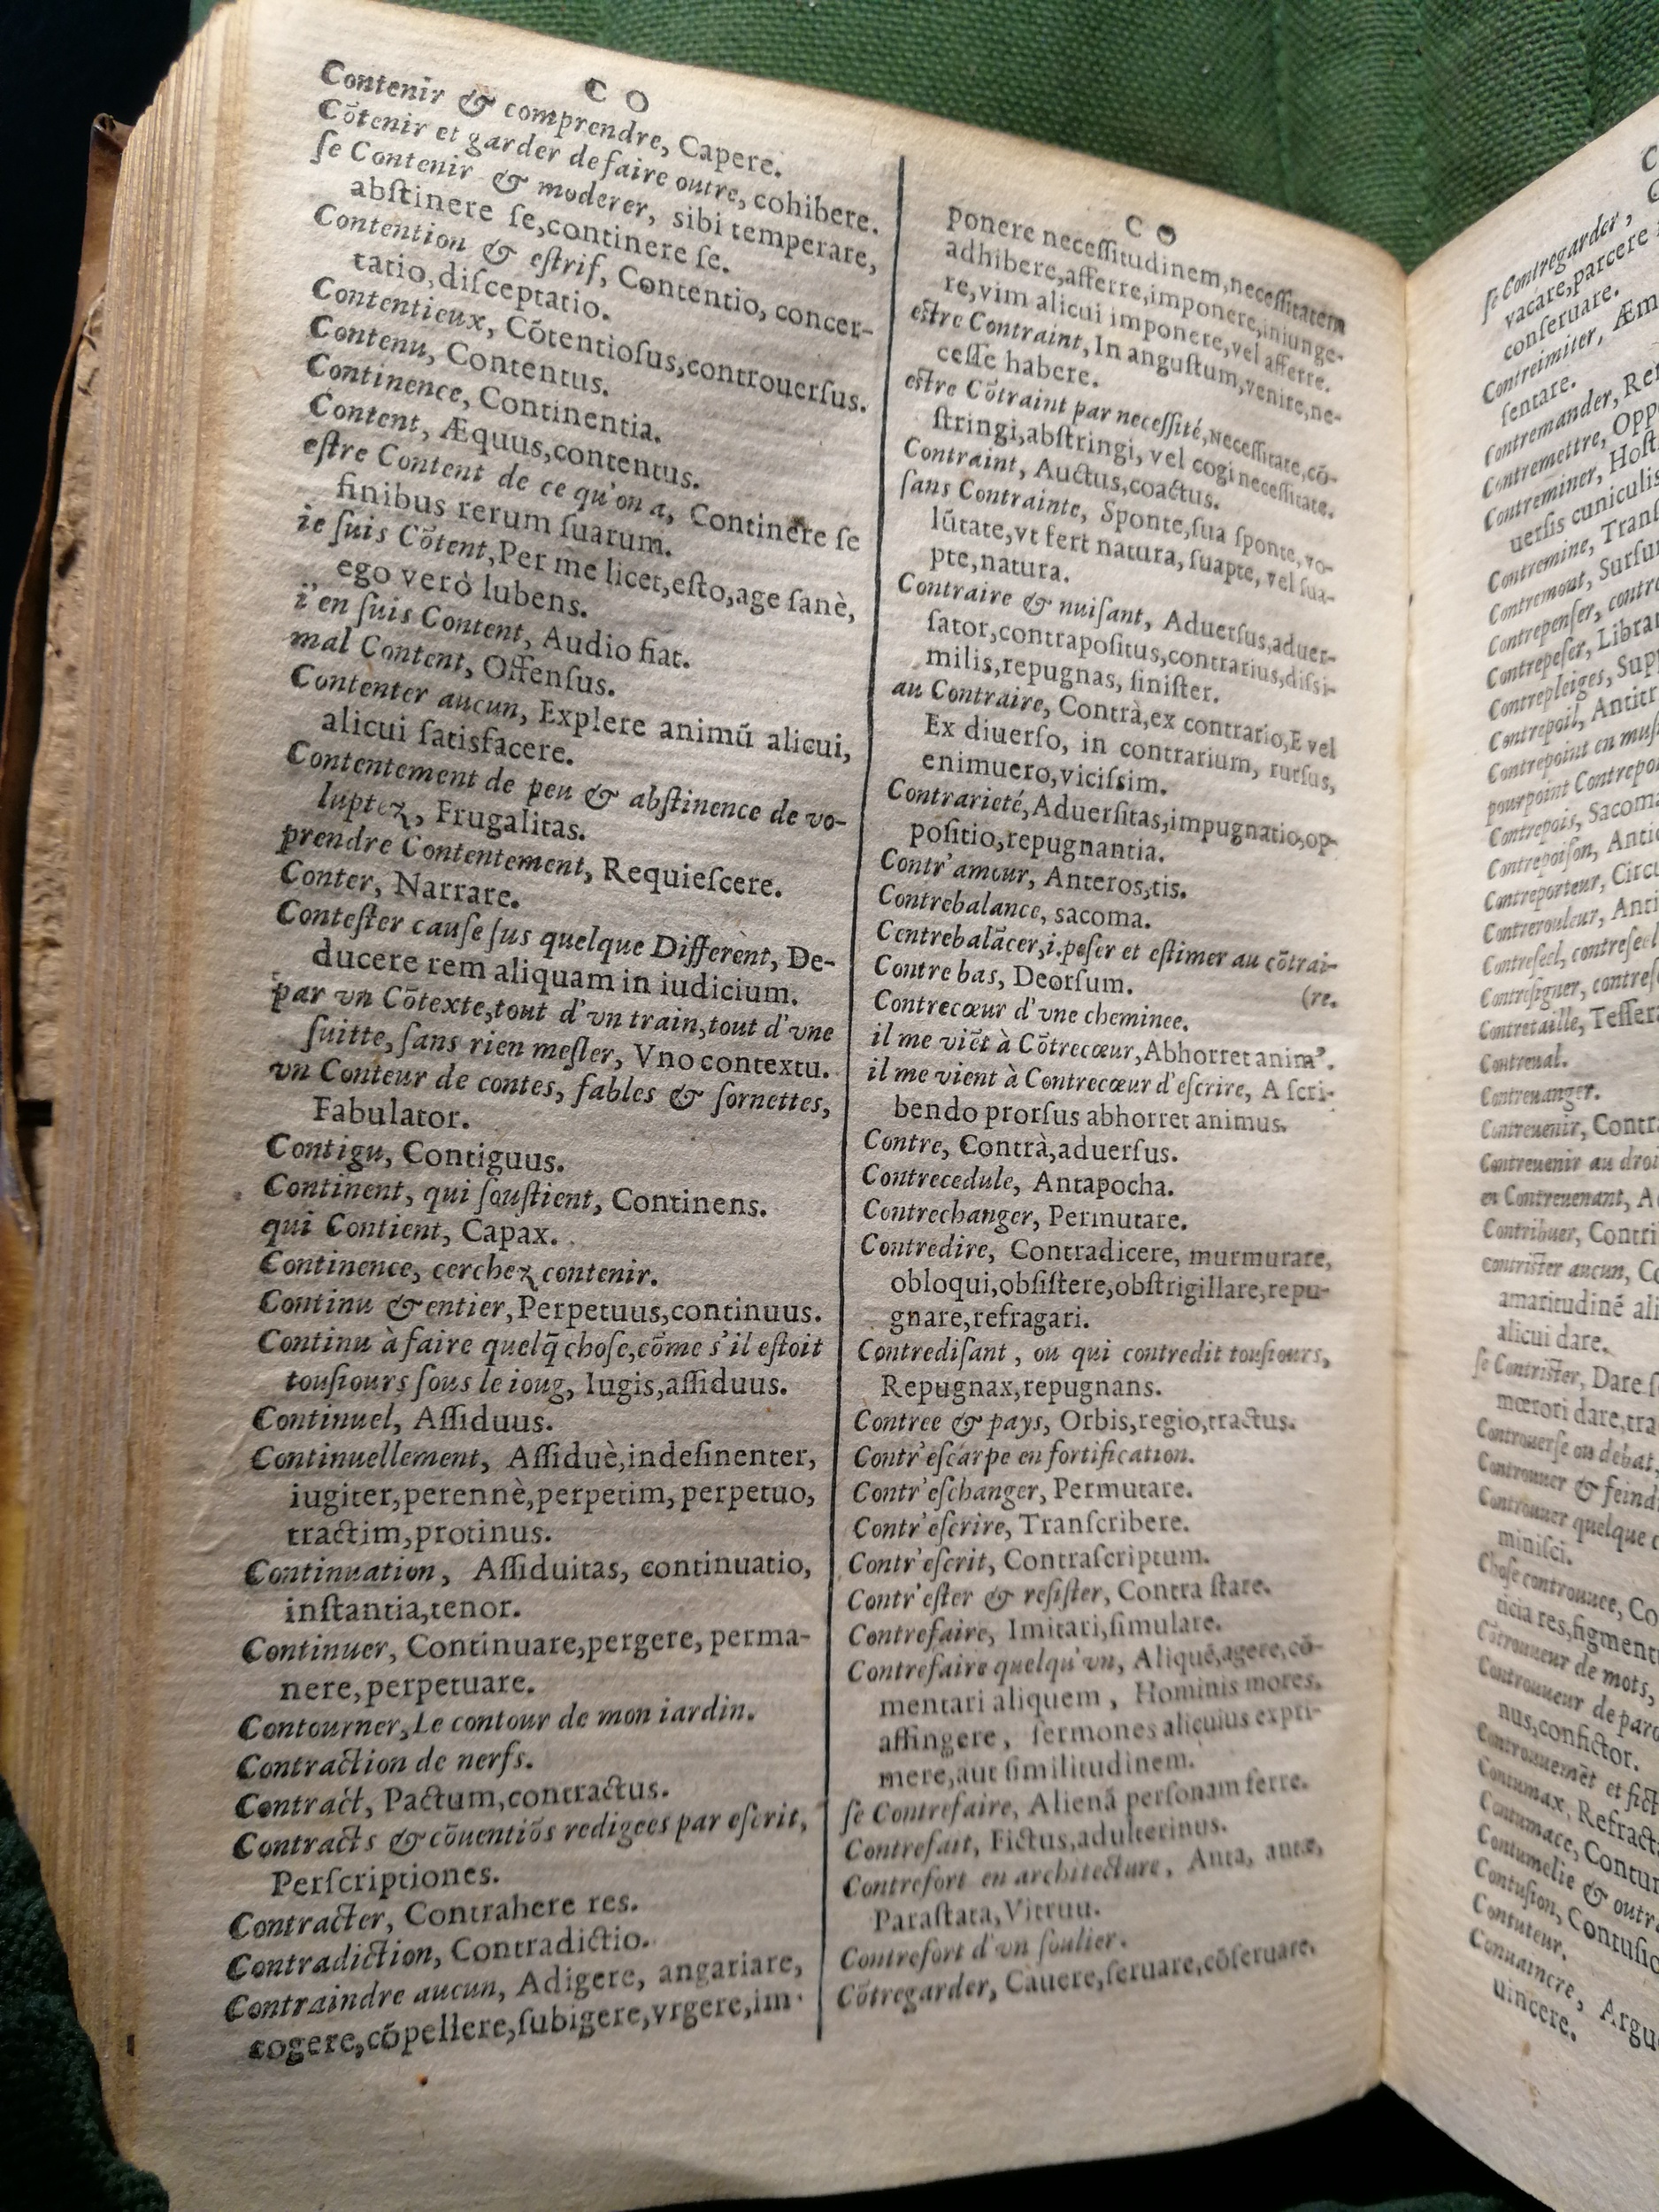 C O
Contenir & comprendre, Capere.
Cõtenir et garder de faire outre, cohibere.
ſe Contenir & moderer, sibi temperare,
abſtinere ſe,continere ſe.
Contention & eſtrif, Contentio, concer-
tatio,diſceptatio.
Contentieux, Cõtentioſus,controuerſus.
Contenu, Contentus.
Continence, Continentia.
Content, Æquus,contentus.
eſtre Content de ce qu'on a, Continere ſe
finibus rerum ſuarum.
ie ſuis Cõtent,Per me licet,eſto,age ſanè,
ego verò lubens.
i'en ſuis Content, Audio fiat.
mal Content, Offenſus.
Contenter aucun, Explere animũ alicui,
alicui ſatisfacere.
Contentement de peu & abſtinence de vo-
luptez, Frugalitas.
prendre Contentement, Requieſcere.
Conter, Narrare.
Conteſter cauſe ſus quelque Different, De-
ducere rem aliquam in iudicium.
par vn Cõtexte,tout d'vn train,tout d'vne
ſuitte, ſans rien meſler, Vno contextu.
vn Conteur de contes, fables & ſornettes,
Fabulator.
Contigu, Contiguus.
Continent, qui ſouſtient, Continens.
qui Contient, Capax.
Continence, cerchez contenir.
Continu & entier,Perpetuus,continuus.
Continu à faire quelq̃ choſe,cõme s'il eſtoit
touſiours ſous le ioug, Iugis,aſſiduus.
Continuel, Aſſiduus.
Continuellement, Aſſiduè,indeſinenter,
iugiter,perennè,perpetim, perpetuo,
tractim,protinus.
Continuation, Aſſiduitas, continuatio,
inſtantia,tenor.
Continuer, Continuare,pergere, perma-
nere,perpetuare.
Contourner,Le contour de mon iardin.
Contraction de nerfs.
Contract, Pactum,contractus.
Contracts & cõuentiõs redigees par eſcrit,
Perſcriptiones.
Contracter, Contrahere res.
Contradiction, Contradictio.
Contraindre aucun, Adigere, angariare,
cogere,cõpellere,ſubigere,vrgere,im-
C O
ponere neceſſitudinem,neceſſitatem
adhibere,afferre,imponere,iniunge-
re,vim alicui imponere,vel afferre.
eſtre Contraint,In anguſtum,venire,ne-
ceſſe habere.
eſtre Cõtraint par neceſſité,Neceſſitate,cõ-
ſtringi,abſtringi, vel cogi neceſſitate.
Contraint, Auctus,coactus.
ſans Contrainte, Sponte,ſua ſponte,vo-
lũtate,vt fert natura, ſuapte, vel ſua-
pte,natura.
Contraire & nuiſant, Aduerſus,aduer-
ſator,contrapoſitus,contrarius,diſsi-
milis,repugnas, ſiniſter.
au Contraire, Contrà,ex contrario,E vel
Ex diuerſo, in contrarium, rurſus,
enimuero,viciſsim.
Contrarieté,Aduerſitas,impugnatio,op-
poſitio,repugnantia.
Contr'amour, Anteros,tis.
Contrebalance, sacoma.
Contrebalãcer,i.peſer et eſtimer au cõtrai-
Contre bas, Deorſum. (re.
Contrecœur d'vne cheminee.
il me viẽt à Cõtrecœur,Abhorret animꝰ.
il me vient à Contrecœur d'eſcrire, A ſcri-
bendo prorſus abhorret animus.
Contre, Contrà,aduerſus.
Contrecedule, Antapocha.
Contrechanger, Permutare.
Contredire, Contradicere, murmurare,
obloqui,obſiſtere,obſtrigillare,repu-
gnare,refragari.
Contrediſant, ou qui contredit touſiours,
Repugnax,repugnans.
Contree & pays, Orbis,regio,tractus.
Contr'eſcarpe en fortification.
Contr'eſchanger, Permutare.
Contr'eſcrire, Tranſcribere.
Contr'eſcrit, Contraſcriptum.
Contr'eſter & reſiſter, Contra ſtare.
Contrefaire, Imitari,ſimulare.
Contrefaire quelqu'vn, Aliquẽ,agere,cõ-
mentari aliquem, Hominis mores,
affingere, ſermones alicuius expri-
mere,aut ſimilitudinem.
ſe Contrefaire, Alienã perſonam ferre.
Contrefait, Fictus,adulterinus.
Contrefort en architecture, Anta, antæ,
Paraſtata,Vitruu.
Contrefort d'vn ſoulier.
Cõtregarder, Cauere,ſeruare,cõſeruare.
ſe Contregarder,
vacare,parcere
conſeruare.
Contreimiter, Æm
ſentare.
Contremander, Ren
Contremettre, Oppo
Contreminer, Hoſt
uerſis cuniculis
Contremine, Tranſ
Contremont, Surſu
Contrepenſer, contre
Contrepeſer, Librar
Contrepleiges, Supp
Contrepoil, Antitr
Contrepoint en muſ
pourpoint Contrepo
Contrepois, Sacoma
Contrepoiſon, Anti
Contreporteur, Circu
Contrerouleur, Anti
Contreſeel, contreſeel
Contreſigner, contreſ
Contretaille, Teſſera
Contreual.
Contreuanger.
Contreuenir, Contra
Contreuenir au droi
en Contreuenant, A
Contribuer, Contri
contriſter aucun, Co
amaritudinẽ ali
alicui dare.
ſe Contriſter, Dare ſ
mœrori dare,tra
Controuerſe ou debat,
Controuuer & feind
Controuuer quelque c
miniſci.
Choſe controuuee, Co
ticia res,figment
Cõtrouueur de mots,
Controuueur de paro
nus,confictor.
Controuuemẽt et fict
Contumax, Refract
Contumace, Contum
Contumelie & outr
Contuſion, Contuſio
Contuteur.
Conuaincre, Argu
uincere.